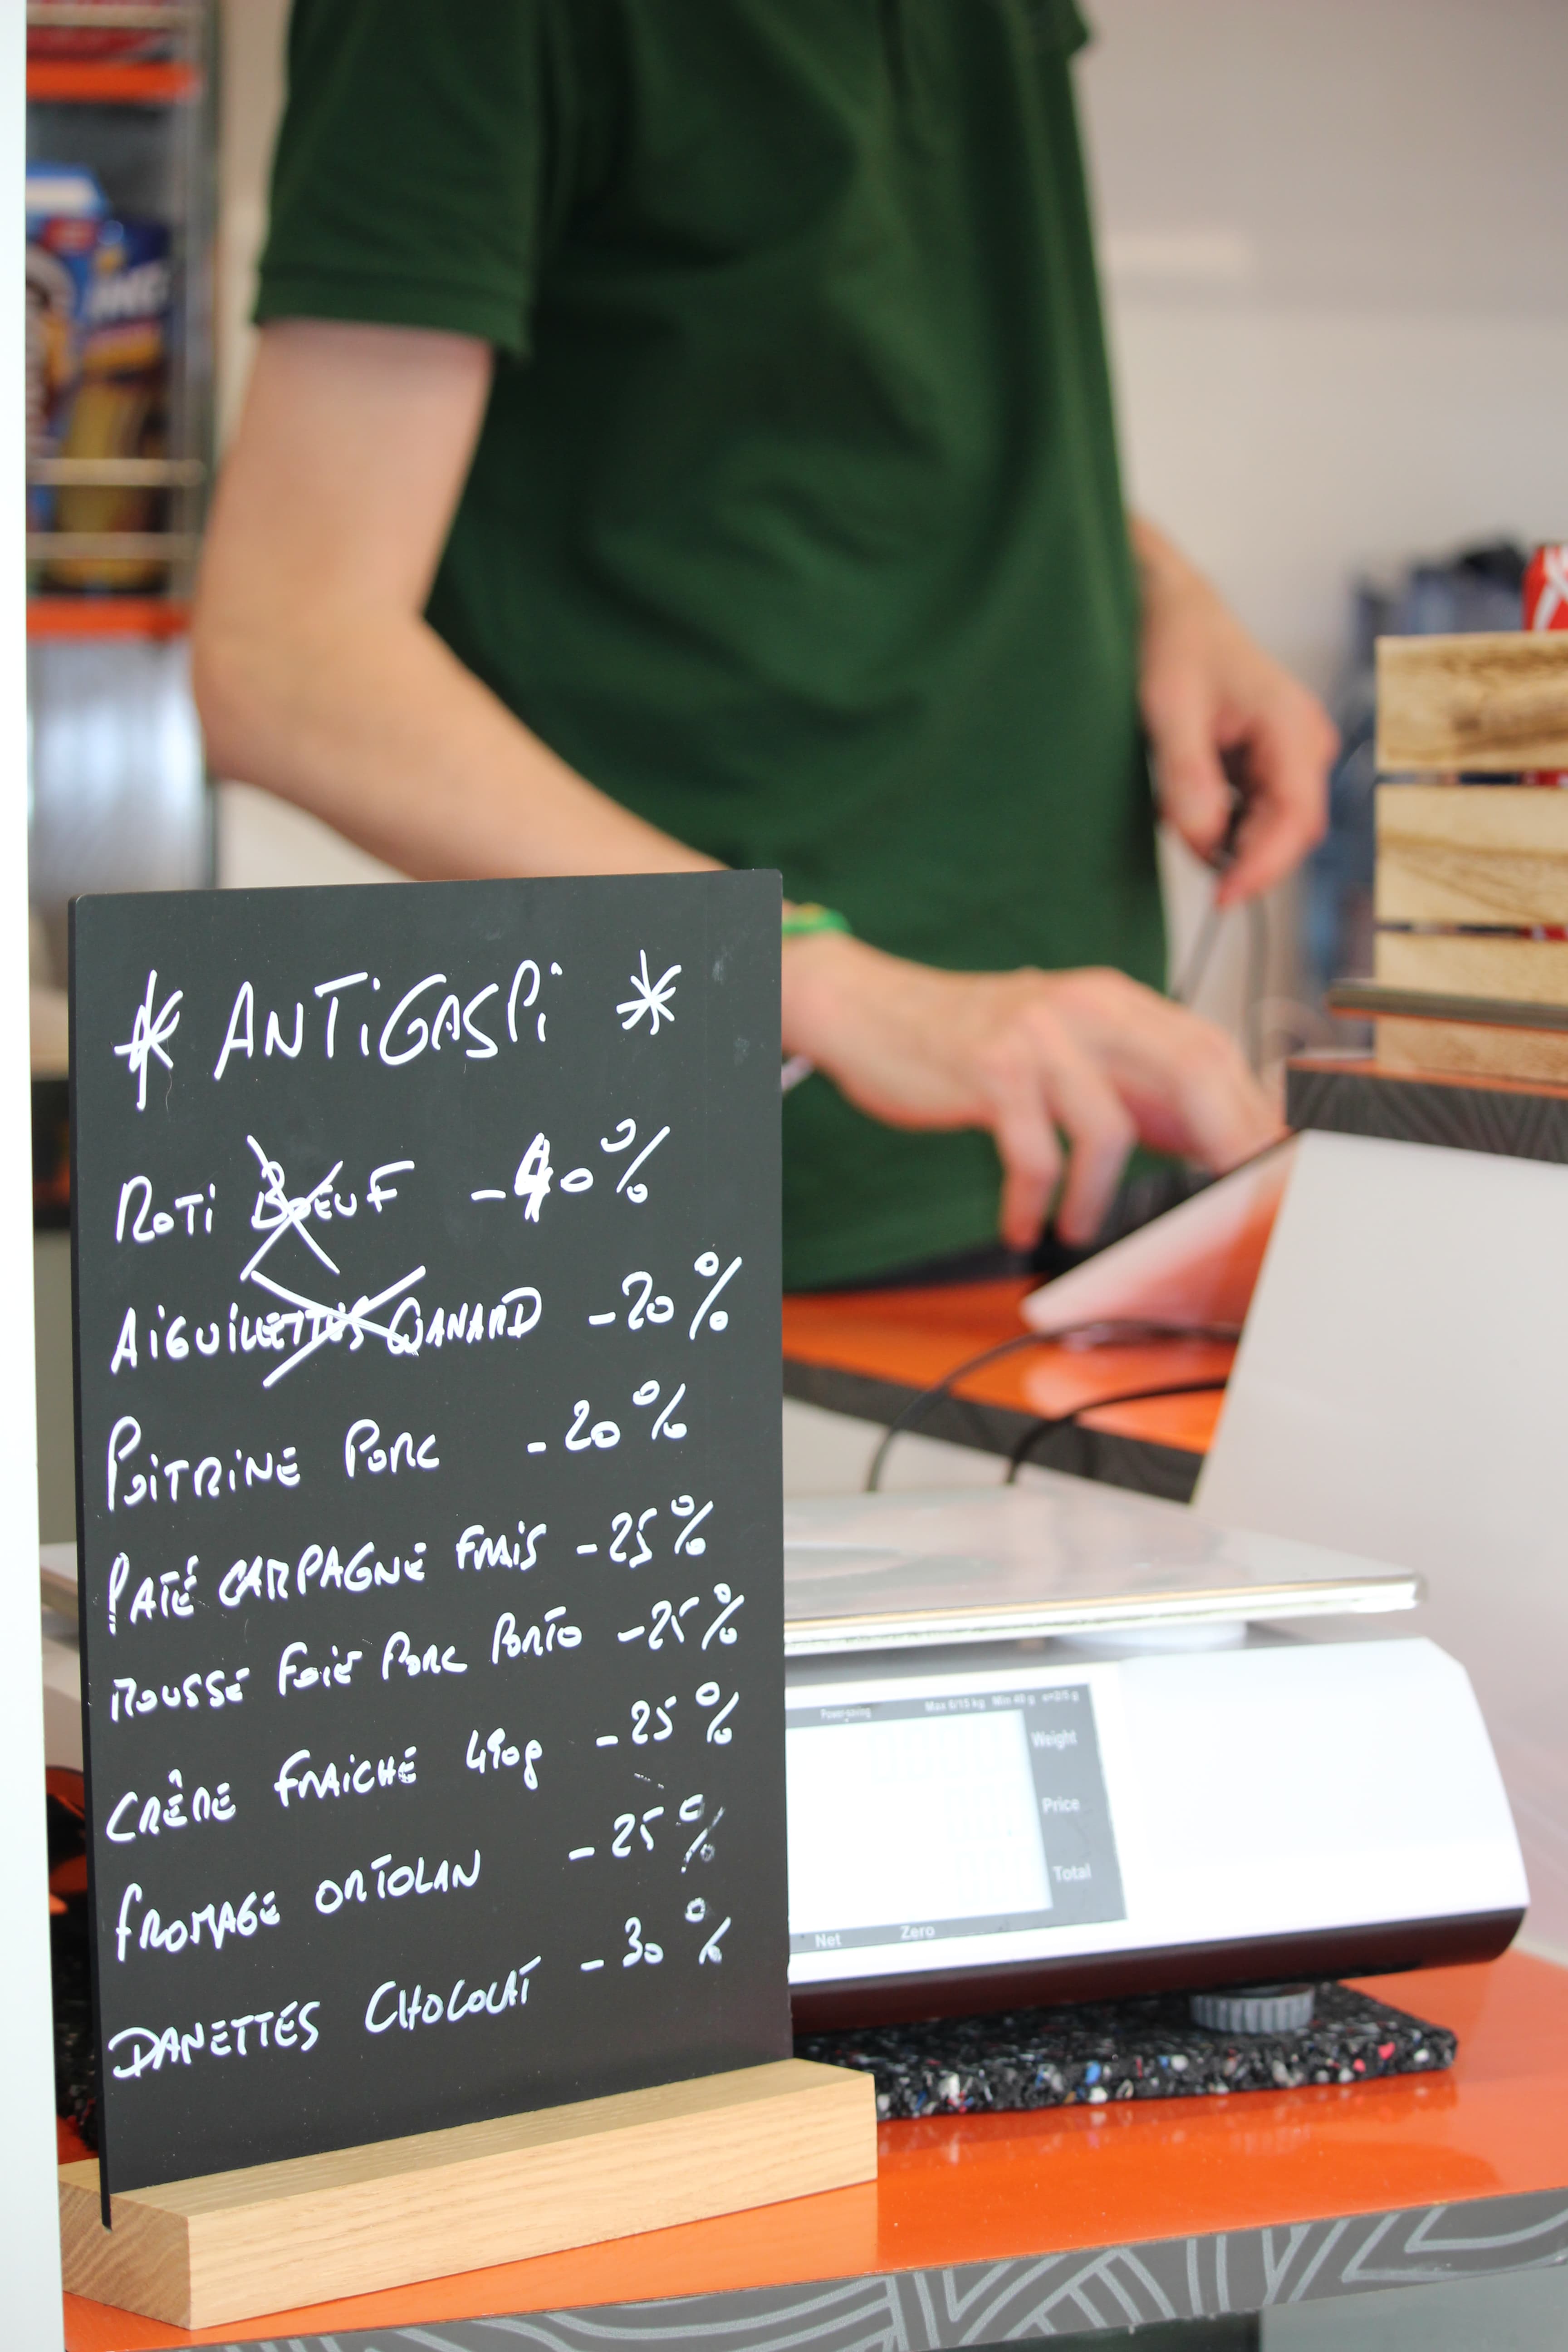 * ANTiGASPi *
ROTi BOEUF -40%
AiGUiLLETTES CANARD -20%
POiTRiNE PORC -20%
PATÉ CAMPAGNE FRAIS -25%
MOUSSE FOiE PORC PORTO -25%
CRÊME FRAICHE 490g -25%
FROMAGE ORTOLAN -25%
DANETTES CHOCOLAT -30%
Power-saving Max 6/15 kg Min 40 g e=2/5 g
Weight
Price
Total
Net Zero